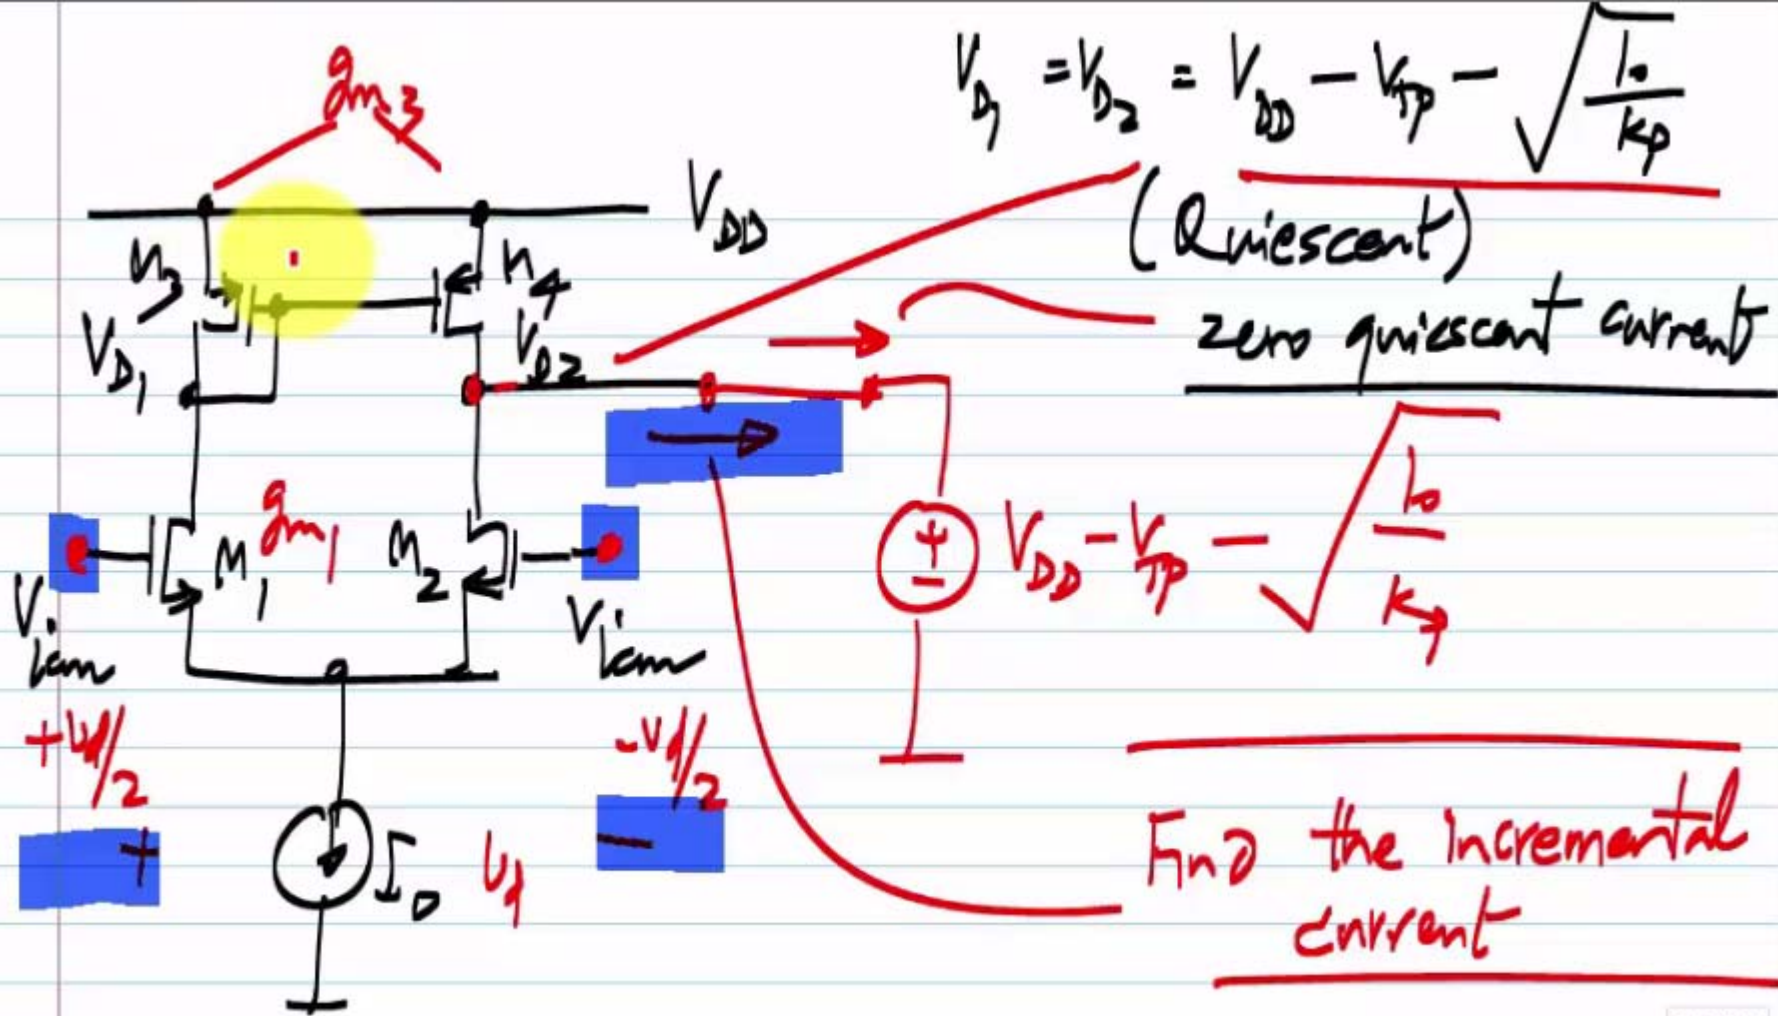 gm3
V_D1 = V_D2 = V_DD - V_TP - √(I0/Kp)
(Quiescent)
V_DD
M3
M4
V_D1
V_D2
zero quiescent current
gm1
M1
M2
V_DD - V_TP - √(I0/Kp)
Vicm
Vicm
+Vd/2
-Vd/2
+
-
I0
Vd
Find the incremental
current